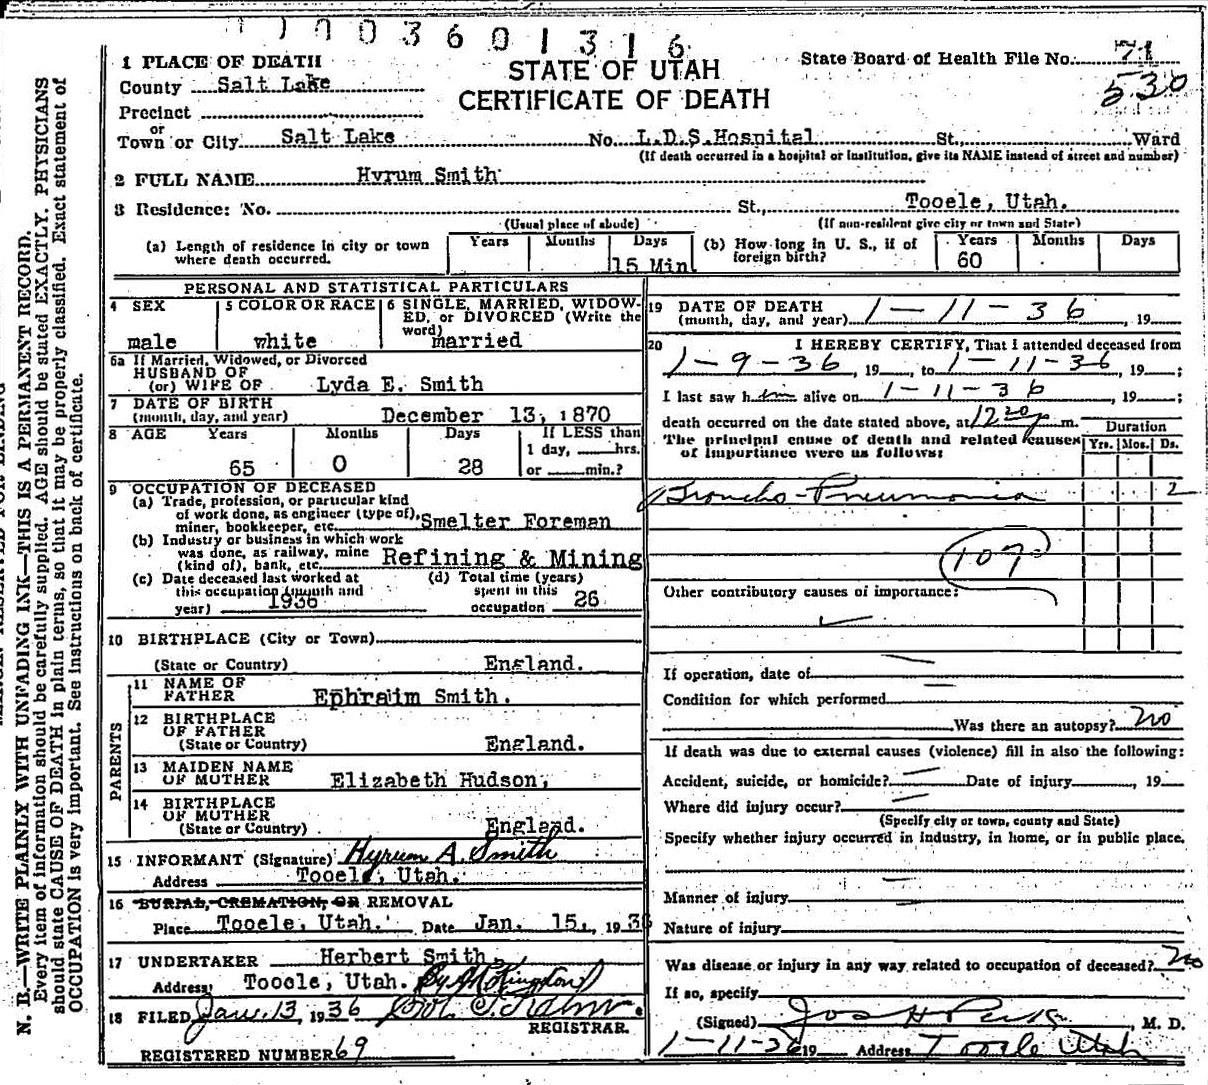 11003601316
STATE OF UTAH
CERTIFICATE OF DEATH
State Board of Health File No. 71
530
1 PLACE OF DEATH
County Salt Lake
Precinct
or
Town or City Salt Lake No. L.D.S.Hospital St., Ward
(If death occurred in a hospital or institution, give its NAME instead of street and number)
2 FULL NAME Hyrum Smith
3 Residence: No. St., Tooele, Utah.
(Usual place of abode) (If non-resident give city or town and State)
(a) Length of residence in city or town where death occurred. Years Months Days 15 Min
(b) How long in U. S., if of foreign birth? Years 60 Months Days
PERSONAL AND STATISTICAL PARTICULARS
4 SEX male
5 COLOR OR RACE white
6 SINGLE, MARRIED, WIDOWED, or DIVORCED (Write the word) married
6a If Married, Widowed, or Divorced
HUSBAND OF
(or) WIFE OF Lyda E. Smith
7 DATE OF BIRTH
(month, day, and year) December 13, 1870
8 AGE Years Months Days If LESS than
1 day, hrs.
65 0 28 or min.?
9 OCCUPATION OF DECEASED
(a) Trade, profession, or particular kind
of work done, as engineer (type of),
miner, bookkeeper, etc. Smelter Foreman
(b) Industry or business in which work
was done, as railway, mine
(kind of), bank, etc. Refining & Mining
(c) Date deceased last worked at
this occupation (month and
year) 1936
(d) Total time (years)
spent in this
occupation 26
10 BIRTHPLACE (City or Town)
(State or Country) England.
PARENTS
11 NAME OF
FATHER Ephraim Smith.
12 BIRTHPLACE
OF FATHER
(State or Country) England.
13 MAIDEN NAME
OF MOTHER Elizabeth Hudson,
14 BIRTHPLACE
OF MOTHER
(State or Country) England.
15 INFORMANT (Signature) Hyrum A. Smith
Address Tooele, Utah.
16 BURIAL, CREMATION, OR REMOVAL
Place Tooele, Utah. Date Jan. 15, 1936
17 UNDERTAKER Herbert Smith
Address Tooele, Utah. By
18 FILED Jan. 13, 1936
REGISTRAR.
REGISTERED NUMBER 69
19 DATE OF DEATH
(month, day, and year) 1-11-36, 19
20 I HEREBY CERTIFY, That I attended deceased from
1-9-36, 19, to 1-11-36, 19;
I last saw him alive on 1-11-36, 19;
death occurred on the date stated above, at 12 20 p m.
The principal cause of death and related causes
of importance were as follows:
Duration
Yrs. Mos. Ds.
Broncho-Pneumonia 2
107
Other contributory causes of importance:
If operation, date of
Condition for which performed
Was there an autopsy? no
If death was due to external causes (violence) fill in also the following:
Accident, suicide, or homicide? Date of injury, 19
Where did injury occur?
(Specify city or town, county and State)
Specify whether injury occurred in industry, in home, or in public place.
Manner of injury
Nature of injury
Was disease or injury in any way related to occupation of deceased? no
If so, specify
(Signed) Jos H Peck, M. D.
1-11-36 19 Address Tooele Utah
N. B.—WRITE PLAINLY WITH UNFADING INK—THIS IS A PERMANENT RECORD.
Every item of information should be carefully supplied. AGE should be stated EXACTLY. PHYSICIANS
should state CAUSE OF DEATH in plain terms, so that it may be properly classified. Exact statement of
OCCUPATION is very important. See instructions on back of certificate.